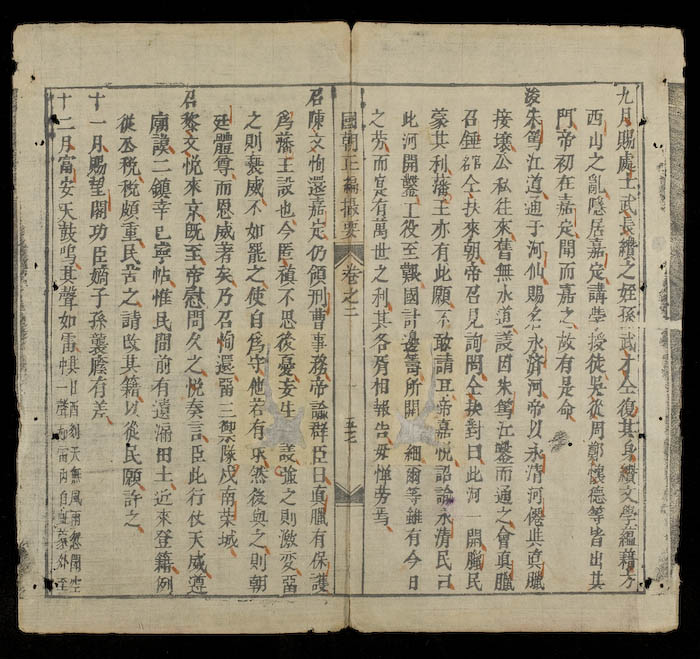 九月賜處士武長纘之姪孫武才仝復其身纘文學蘊藉方
西山之亂隱居嘉定講學授徒吳從周鄭懷德等皆出其
門帝初在嘉定聞而嘉之故有是命
浚朱篤江道通于河仙賜名永濟河帝以永濟河僊與真臘
接壤公私往來舊無水道議因朱篤江鑿而通之會真臘
召錘 仝扶來朝帝召見詢問仝扶對曰此河一開臘民
蒙其利藩王亦有此願不敢請耳帝嘉悅詔諭永清民曰
此河開鑿工役至艱國計邊籌所關 細爾等雖有今日
之勞而寔有萬世之利其各胥相報告毋憚勞焉
國朝正編撮要 卷之二 五十
召陳文恂還嘉定仍領刑曹事務帝諭群臣曰真臘有保護
為藩王設也今匿禎不思後憂妄生 議強之則激変畱
之則褻威不如罷之使自為守他若有求然後與之則朝
廷體尊而恩威著矣乃召恂還畱三禦隊戍南榮城
召黎文悅來京既至帝慰問久之悅奏言臣此行仗天威遵
廟謨二鎮幸已寧帖惟民間前有遺漏田土近來登籍例
從丞稅稅頗重民苦之請改其籍以從民願許之
十一月賜望閣功臣嫡子孫襲廕有差
十二月富安天鼓鳴其聲如雷 酉刻天無風雨忽聞 一聲 自 外至